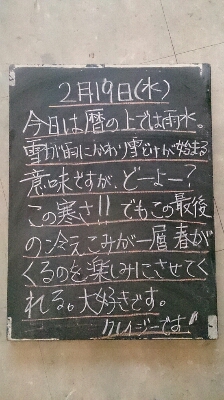 2月19日(水)
今日は暦の上では雨水。
雪が雨にかわり雪どけが始まる
意味ですが、どーよー?
この寒さ!!でもこの最後
の冷えこみが一層春が
くるのを楽しみにさせてく
れる。大好きです。
クレイジーです"